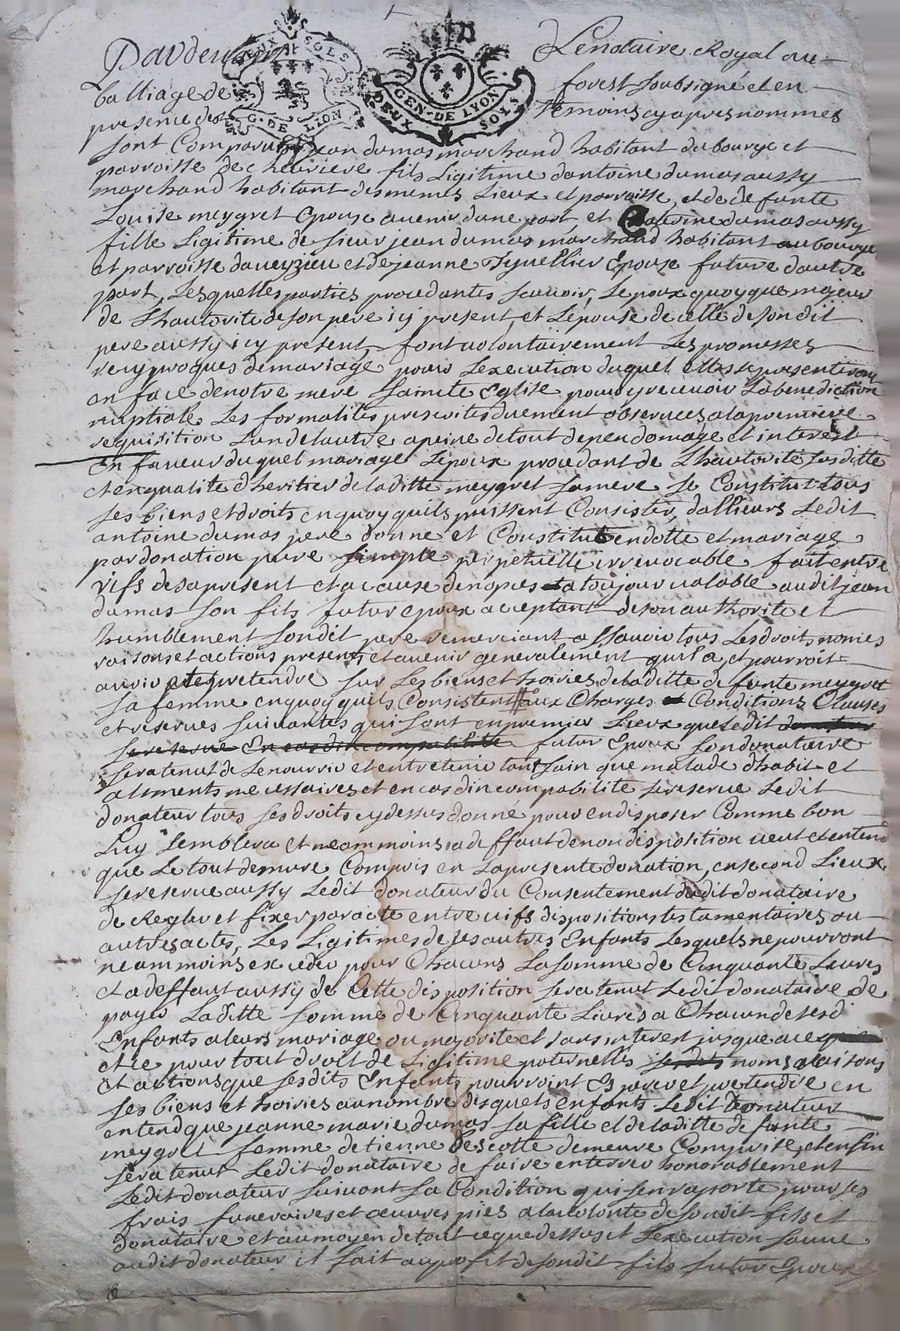 Pardevant Le notaire Royal au
DEUX SOLS
G. DE LION
GEN. DE LYON
DEUX SOLS
balliage de forest soubsigné et en
presence des temoins cy apres nommes
sont Comparus jean dumas marchand habitant du bourg et
parroisse de chevriere fils Legitime d'antoine dumas aussy
marchand habitant des memes Lieux et parroisse, et de defunte
Louise meygret Epoux avenir d'une part et Catherine dumas aussy
fille Legitime de sieur jean dumas marchand habitant au bourg
et parroisse d'aveyzieu et de jeanne Epouse future d'autre
part, Lesquelles parties procedantes sçavoir, Lepoux quoy que majeur
de L'hautorité de son pere icy present, et L'epouse de celle de son dit
pere aussy icy present, font volontairement Les promesses
reciproques de mariage pour L'execution duquel elles se presenteront
en face de notre mere Sainte Eglise pour y recevoir La benediction
nuptiale Les formalités prescrites duement observees a la premiere
requisition L'un de L'autre a peine de tout depen domage et interest
En faveur duquel mariage Lepoux procedant de L'hautorité susditte
et en qualité d'heritier de laditte meygret sa mere se Constitue tous
ses biens et droits en quoy quils puissent Consister, d'allieurs Ledit
antoine dumas pere donne et Constitue en dotte et mariage
par donation pure simple perpetuelle irrevocable fait entre
vifs des apresent et a cause de nopces a toujour valable audit jean
dumas son fils futur epoux acceptant de son authorité et
humblement sondit pere remerciant a sçavoir tous Les droit, nomies
raisons et actions present et avenir generalement quil a et pourroit
avoir et pretendre sur Les biens et hoiries de laditte defunte meygret
sa femme en quoy quils Consistent aux Charges Conditions Clauses
et reserves suivantes qui sont en premier Lieux que Ledit
se reserve En cas d'incompatibilité futur Epoux son donataire
sera tenut de Le nourrir et entretenir tant sain que malade d'habit et
aliments necessaires et en cas d'incompatibilité se reserve Ledit
donateur tous ses droits cy dessus donné pour en disposer Comme bon
Luy semblera et neammoins a deffaut de non disposition veut et entend
que Le tout demeure Compris en La presente donation, en second Lieux
se reserve aussy Ledit donateur du Consentement dudit donataire
de Regler et fixer par acte entre vifs dispositions testamentaires ou
autres actes, Les Legitimes de ses autres Enfants Lesquels ne pourront
neammoins exceder pour Chacuns La somme de Cinquante Livres
et a deffaut aussy de Cette disposition sera tenut Ledit donataire de
payer Laditte somme de Cinquante Livres a Chacun de sesd
Enfants a leurs mariage ou majorité et sans interest jusque a ce
et ce pour tout droit de Legitime paternelle noms raisons
et actions que sesdits Enfants pourroint Esperer et pretendre en
ses biens et hoiries au nombre desquels enfants Ledit donateur
entend que jeanne marie dumas sa fille et de laditte defunte
meygret femme d'etienne descotte demeure Comprise, et enfin
sera tenut Ledit donataire de faire enterrer honorablement
Ledit donateur suivant sa Condition qui s'en rapporte pour ses
frais funeraires et œuvres pies a la volonté de sondit fils et
donataire et au moyen de tout ce que dessus et L'execution sauve
audit donateur il fait au profit de sondit fils futur Epoux